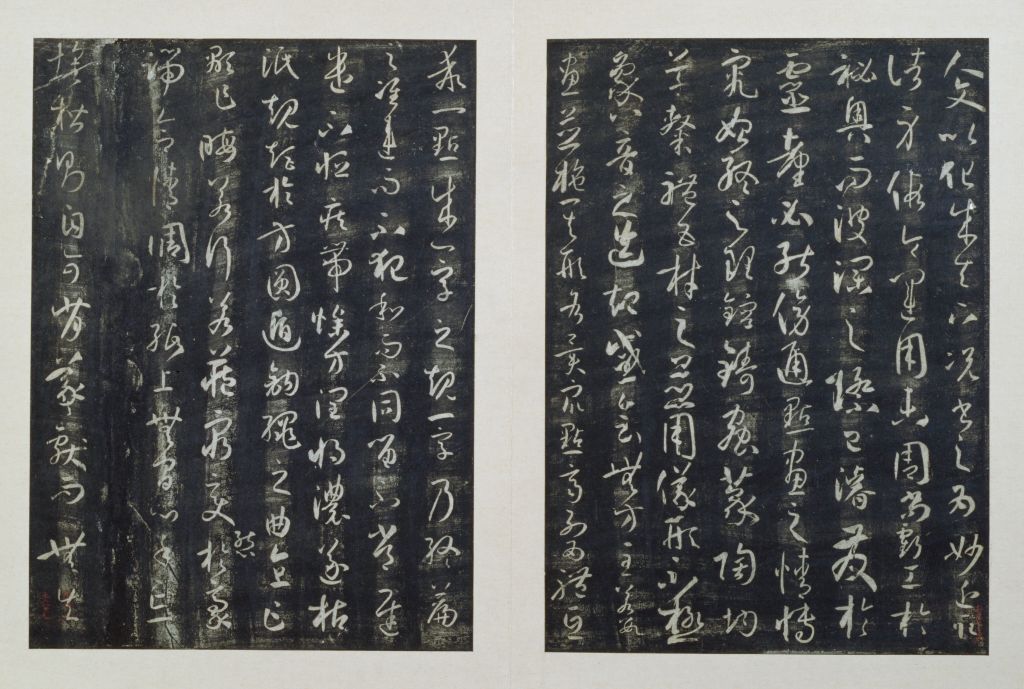 人文以化成天下況書之為妙近取
諸身假令運用未周尚虧工於
祕奧而波瀾之際已濬發於
靈臺必能傍通點畫之情博
究始終之理鎔鑄蟲篆陶均
草隸體五材之並用儀形不極
象八音之迭起感會無方至若數
畫並施其形各異眾點齊列為體互
乖一點成一字之規一字乃終篇
之准違而不犯和而不同留不常遲
遣不恒疾帶燥方潤將濃遂枯
泯規矩於方圓遁鉤繩之曲直乍
顯乍晦若行若藏窮變態於豪
端合情調於紙上無間心手忘
懷楷則自可背羲獻而無失